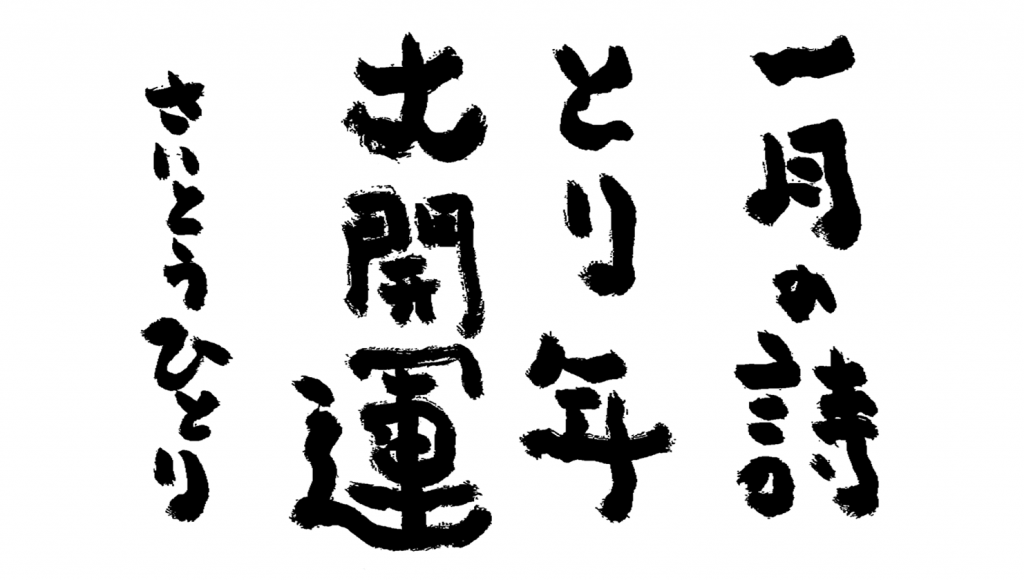 一月の詩
とり年
大開運
さいとうひとり